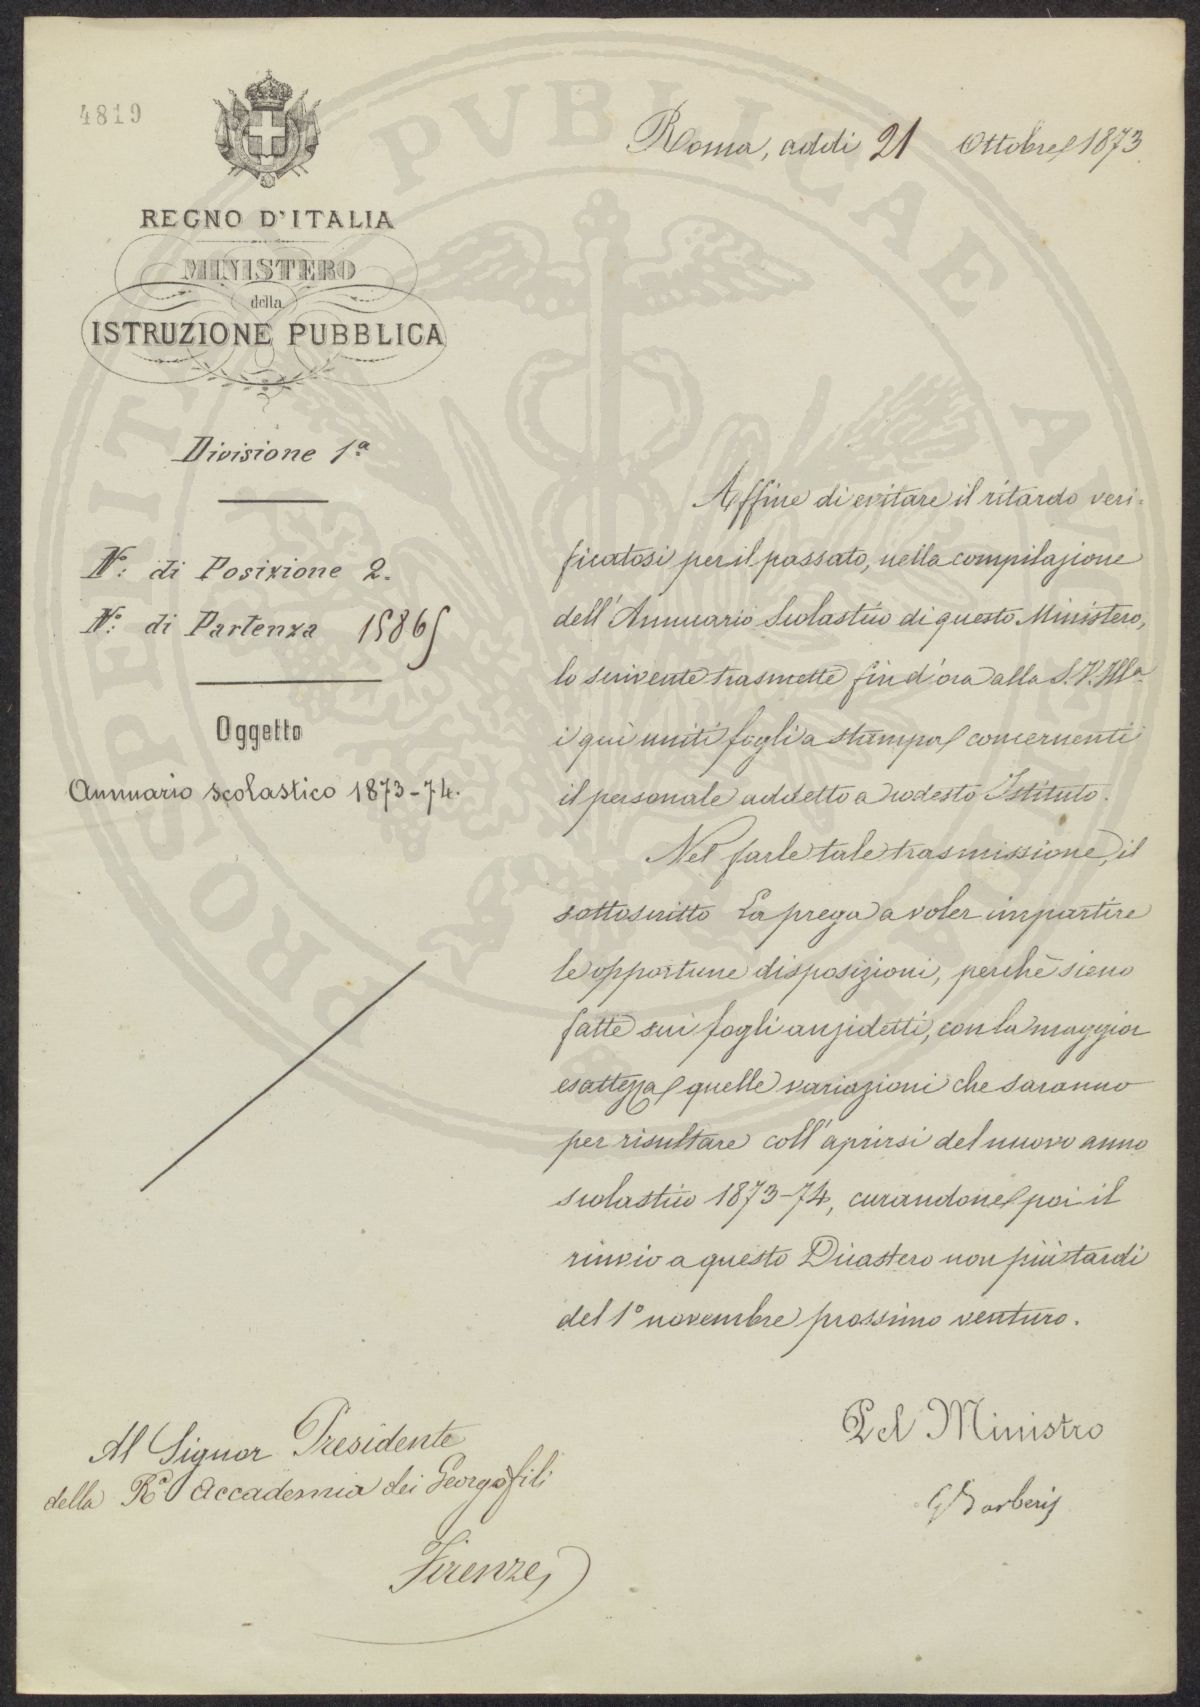 4819
REGNO D'ITALIA
MINISTERO
della
ISTRUZIONE PUBBLICA
Divisione 1ª
Nº: di Posizione 2.
Nº: di Partenza 15865
Oggetto
Annuario scolastico 1873-74.
Roma, addì 21 Ottobre 1873
Affine di evitare il ritardo veri-
ficatosi per il passato, nella compilazione
dell'Annuario Scolastico di questo Ministero,
lo scrivente trasmette fin d'ora alla S. V. Illª
i quì uniti fogli a stampa concernenti
il personale addetto a codesto Istituto.
Nel farle tale trasmissione, il
sottoscritto La prega a voler impartire
le opportune disposizioni, perchè sieno
fatte sui fogli anzidetti, con la maggior
esattezza quelle variazioni che saranno
per risultare coll'aprirsi del nuovo anno
scolastico 1873-74, curandone poi il
rinvio a questo Dicastero non più tardi
del 1º novembre prossimo venturo.
Pel Ministro
G Barberis
Al Signor Presidente
della Rª Accademia dei Georgofili
Firenze
PROSPERITATI PVBLICAE AVGENDAE